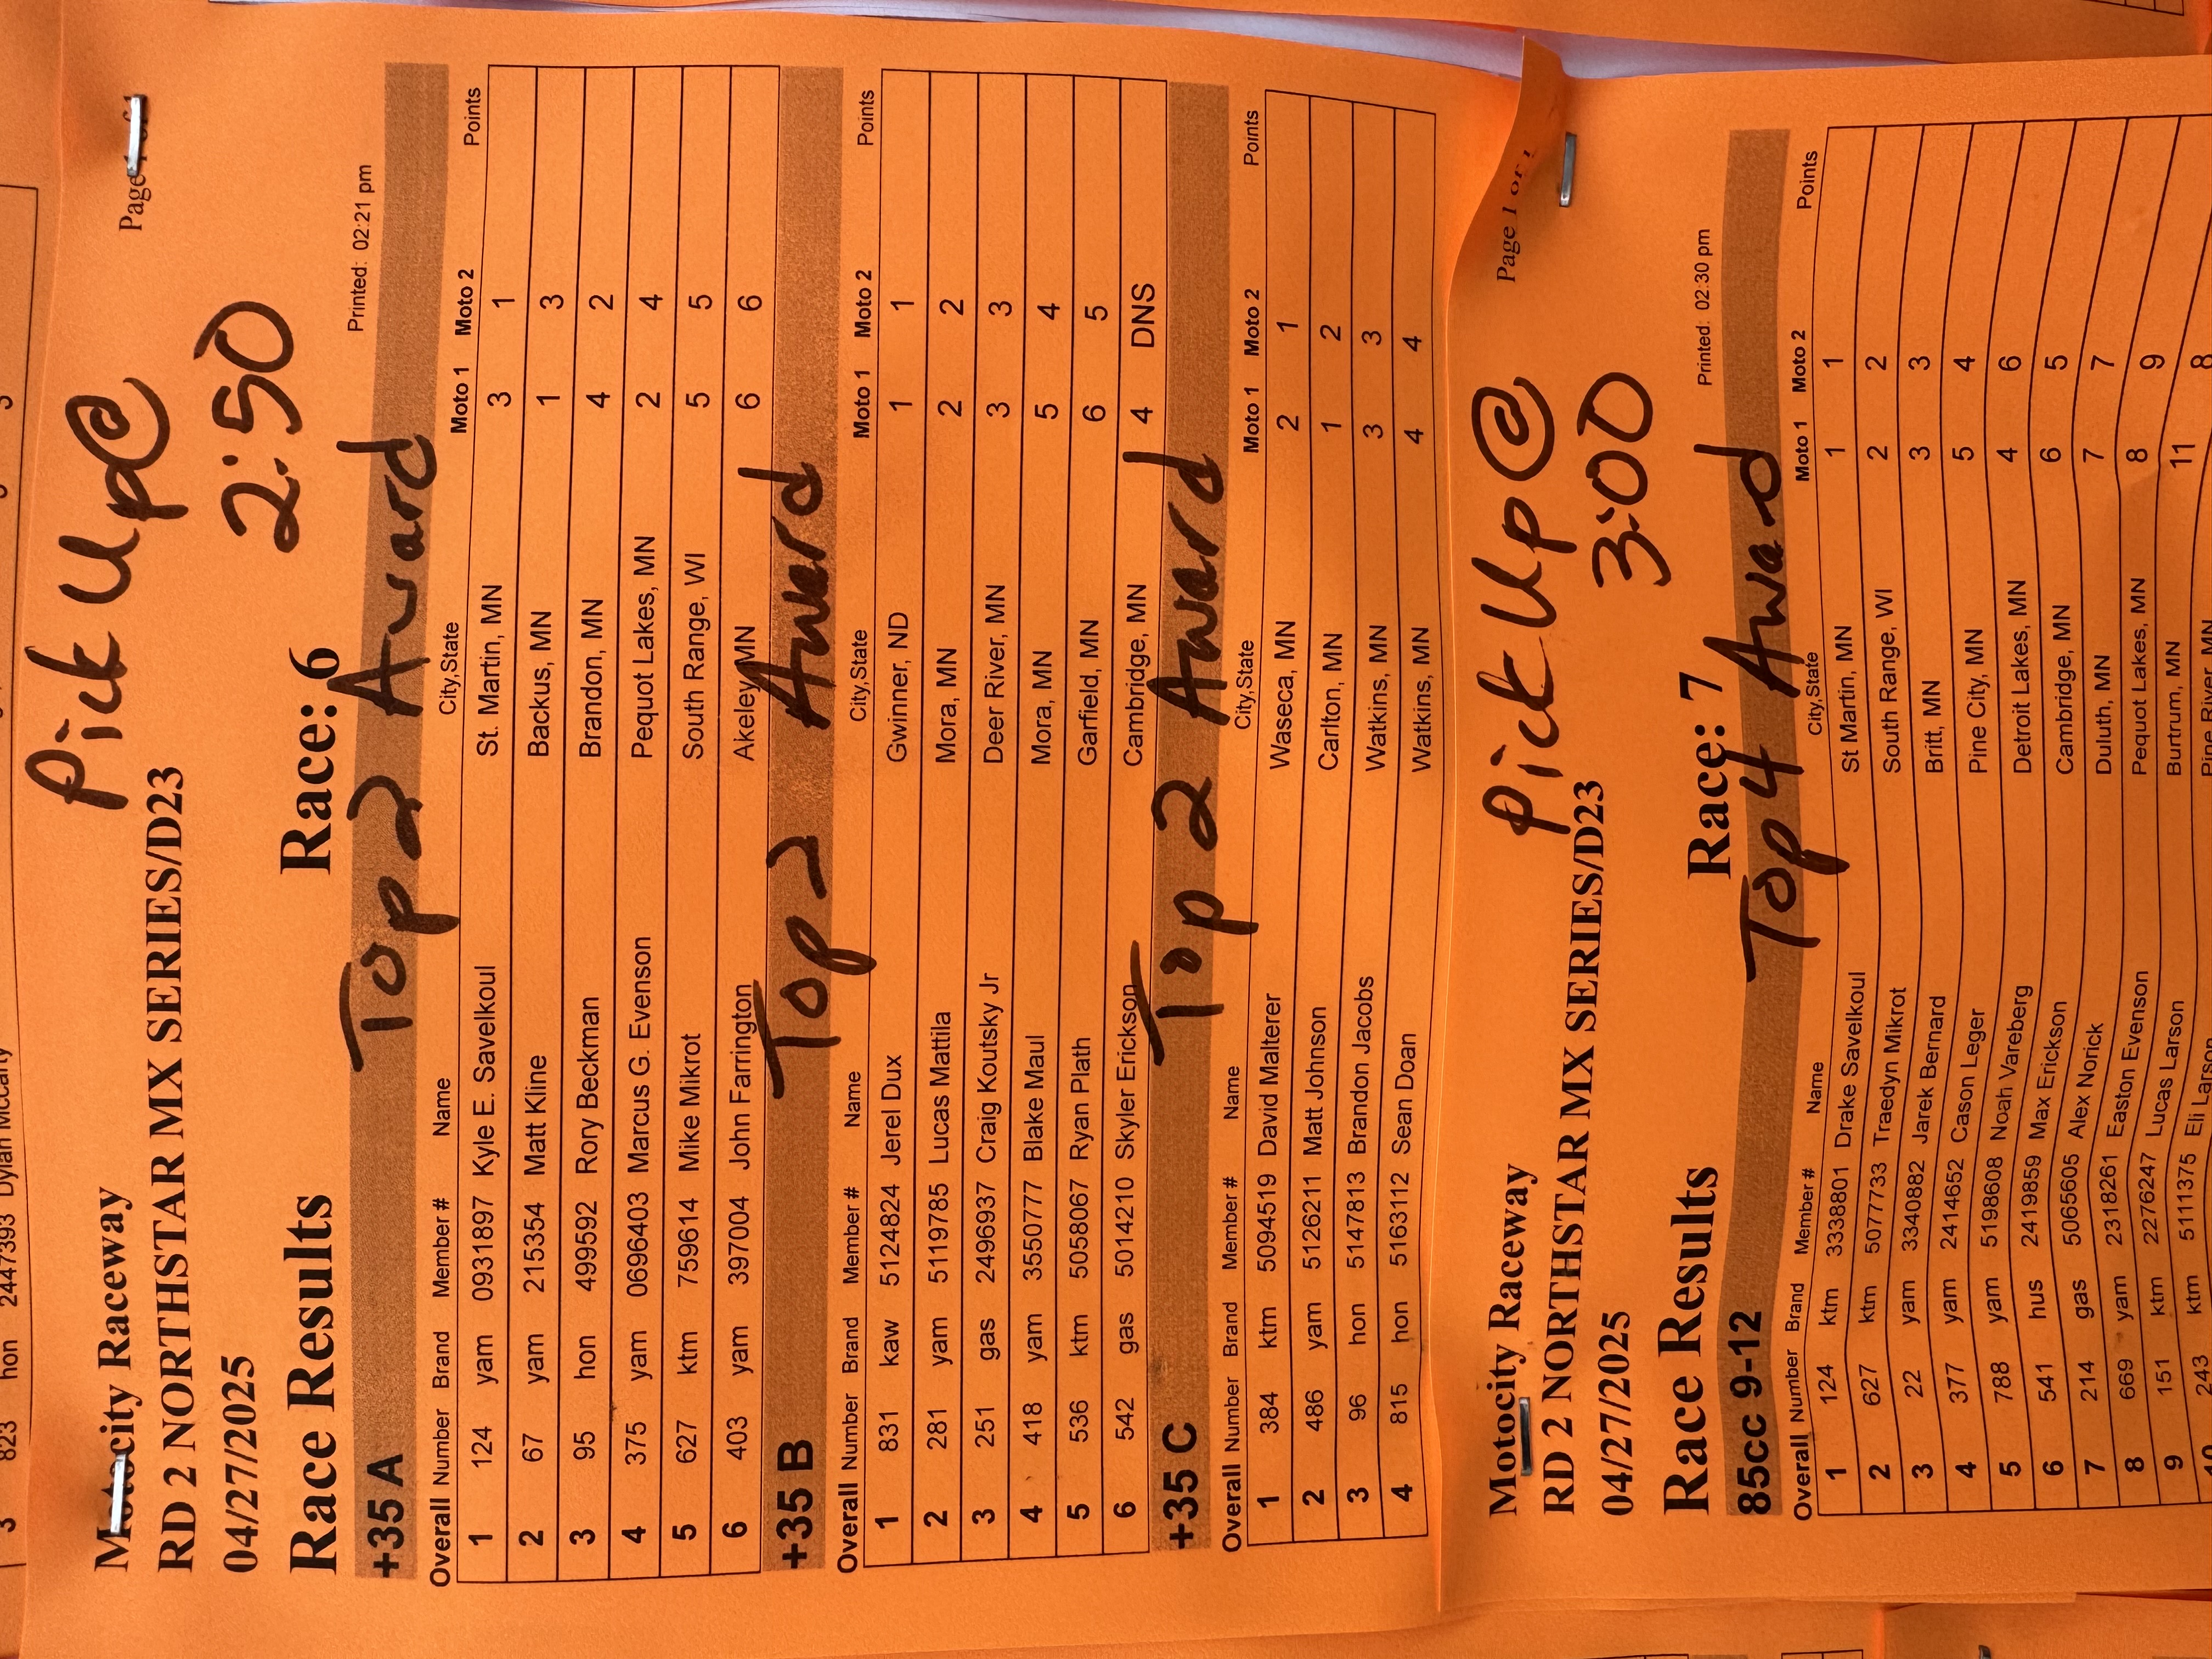 3 823 hon 2447393 Dylan
Pick Up@
2:50
Motocity Raceway
RD 2 NORTHSTAR MX SERIES/D23
04/27/2025
Race Results Race: 6
Printed: 02:21 pm
+35 A Top 2 Award
Overall Number Brand Member # Name City,State Moto 1 Moto 2 Points
1 124 yam 0931897 Kyle E. Savelkoul St. Martin, MN 3 1
2 67 yam 215354 Matt Kline Backus, MN 1 3
3 95 hon 499592 Rory Beckman Brandon, MN 4 2
4 375 yam 0696403 Marcus G. Evenson Pequot Lakes, MN 2 4
5 627 ktm 759614 Mike Mikrot South Range, WI 5 5
6 403 yam 397004 John Farrington Akeley, MN 6 6
+35 B Top 2 Award
Overall Number Brand Member # Name City,State Moto 1 Moto 2 Points
1 831 kaw 5124824 Jerel Dux Gwinner, ND 1 1
2 281 yam 5119785 Lucas Mattila Mora, MN 2 2
3 251 gas 2496937 Craig Koutsky Jr Deer River, MN 3 3
4 418 yam 3550777 Blake Maul Mora, MN 5 4
5 536 ktm 5058067 Ryan Plath Garfield, MN 6 5
6 542 gas 5014210 Skyler Erickson Cambridge, MN 4 DNS
+35 C Top 2 Award
Overall Number Brand Member # Name City,State Moto 1 Moto 2 Points
1 384 ktm 5094519 David Malterer Waseca, MN 2 1
2 486 yam 5126211 Matt Johnson Carlton, MN 1 2
3 96 hon 5147813 Brandon Jacobs Watkins, MN 3 3
4 815 hon 5163112 Sean Doan Watkins, MN 4 4
Page 1 of 1
Pick Up@
3:00
Motocity Raceway
RD 2 NORTHSTAR MX SERIES/D23
04/27/2025
Race Results Race: 7
Printed: 02:30 pm
85cc 9-12 Top 4 Award
Overall Number Brand Member # Name City,State Moto 1 Moto 2 Points
1 124 ktm 3338801 Drake Savelkoul St Martin, MN 1 1
2 627 ktm 5077733 Traedyn Mikrot South Range, WI 2 2
3 22 yam 3340882 Jarek Bernard Britt, MN 3 3
4 377 yam 2414652 Cason Leger Pine City, MN 5 4
5 788 yam 5198608 Noah Vareberg Detroit Lakes, MN 4 6
6 541 hus 2419859 Max Erickson Cambridge, MN 6 5
7 214 gas 5065605 Alex Norick Duluth, MN 7 7
8 669 yam 2318261 Easton Evenson Pequot Lakes, MN 8 9
9 151 ktm 2276247 Lucas Larson Burtrum, MN 11 8
10 243 ktm 5111375 Eli Larson Pine River, MN